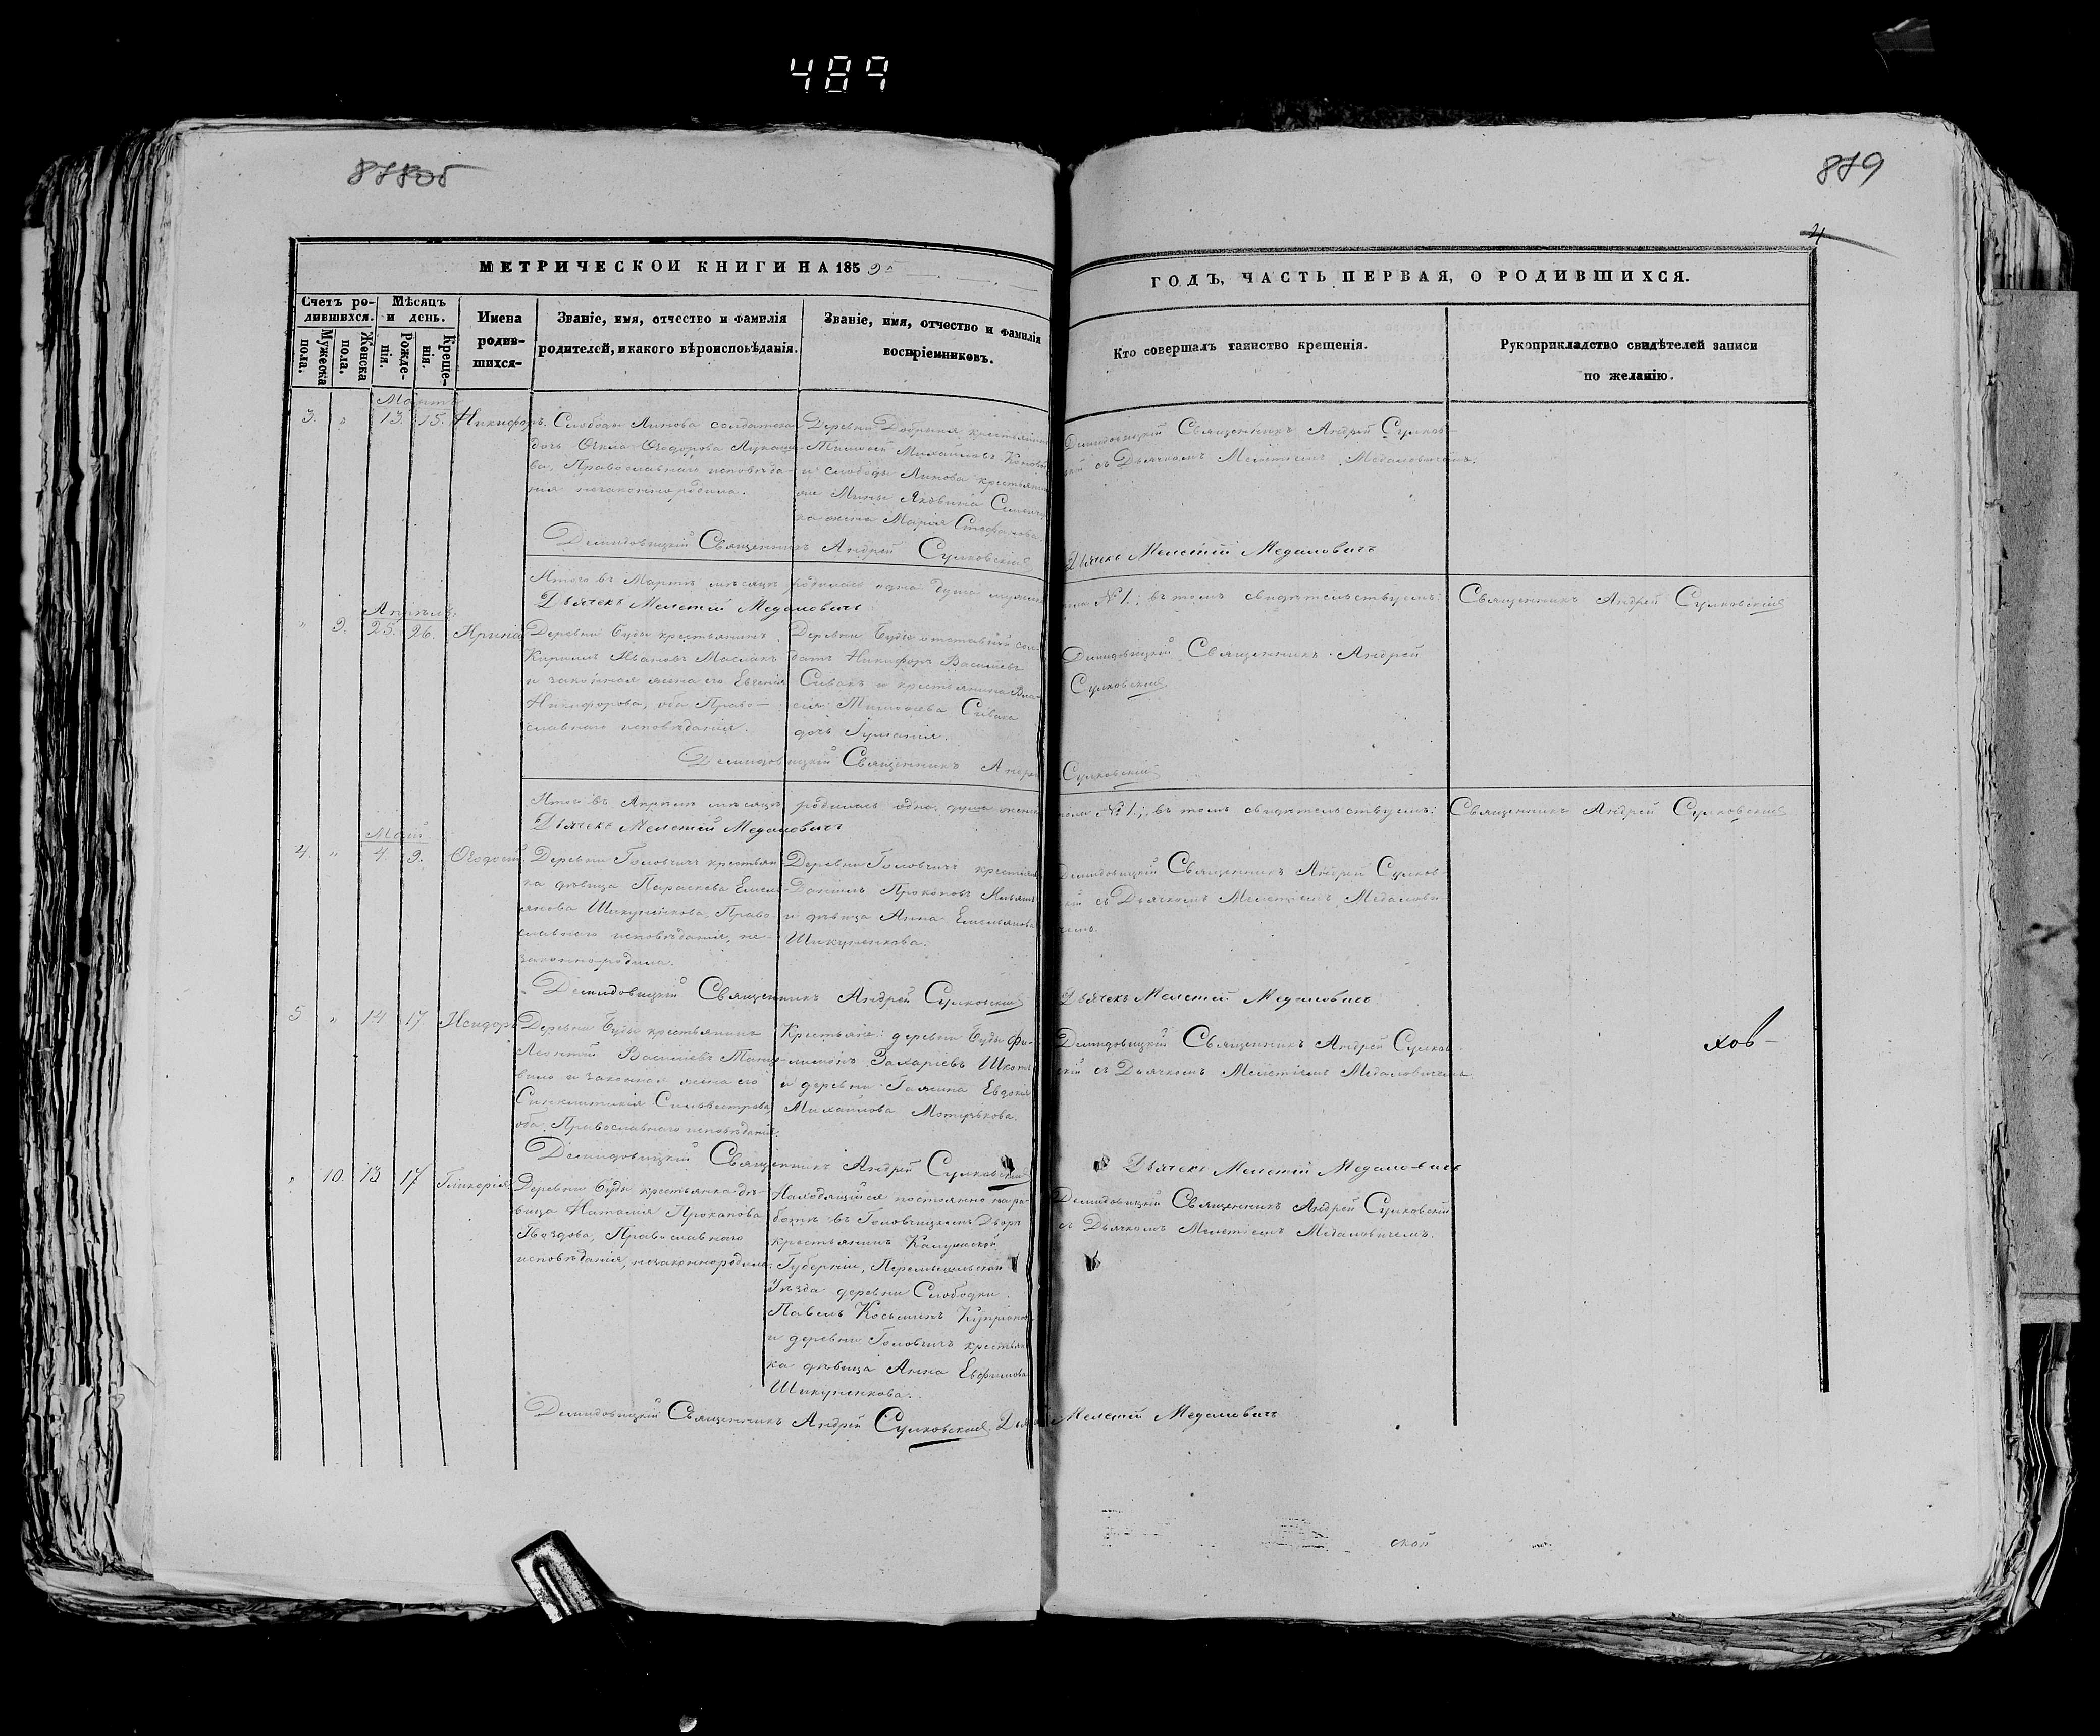 489
879
4
МЕТРИЧЕСКОЙ КНИГИ НА 1859
ГОДЪ, ЧАСТЬ ПЕРВАЯ, О РОДИВШИХСЯ.
Счетъ ро-
дившихся.
Мужеска
пола.
Женска
пола.
Мѣсяцъ
и день.
Рожде-
нія.
Креще-
нія.
Имена
родив-
шихся-
Званіе, имя, отчество и фамилія
родителей, и какого вѣроисповѣданія.
Званіе, имя, отчество и фамилія
воспріемниковъ.
Кто совершалъ таинство крещенія.
Рукоприкладство свидѣтелей записи
по желанію.
Мартъ
3. " 13. 15. Никифоръ.
Слободы Липова солдатская
дочь Ѳекла Ѳеодорова
ва, Православнаго исповѣда-
нія незаконнородила.
Деревни крестьянинъ
Тимоѳей Михайловъ
и слободы Липова крестьяни-
на жена Марія Стефанова.
Демидовицкій Священникъ Андрей Сулков-
скій съ Дьячкомъ Мелетіемъ Медаловичемъ.
Демидовицкій Священникъ Андрей Сулковскій
Дьячекъ Мелетій Медаловичъ
Итого въ Мартѣ мѣсяцѣ родилась одна душа мужеска
пола №1.; въ томъ свидѣтельствуемъ: Священникъ Андрей Сулковскій
Дьячекъ Мелетій Медаловичъ
Апрѣль
" 9. 25. 26. Ирина
Деревни Буды крестьянинъ
Кириллъ Ивановъ Маслакъ
и законная жена его Евгенія
Никифорова, оба Право-
славнаго исповѣданія.
Деревни Буды отставной сол-
датъ Никифоръ Василіевъ
Сивакъ и крестьянина Вла-
сія Тимоѳеева Сивака
дочь Іуліанія.
Демидовицкій Священникъ Андрей
Сулковскій
Демидовицкій Священникъ Андрей Сулковскій
Итого въ Апрѣлѣ мѣсяцѣ родилась одна душа женска
пола №1.; въ томъ свидѣтельствуемъ: Священникъ Андрей Сулковскій
Дьячекъ Мелетій Медаловичъ
Май
4. " 4. 9. Ѳеодосій
Деревни Головчицъ крестьян-
ка дѣвица Параскева Емель-
янова Шикуненкова, Право-
славнаго исповѣданія, не-
законнородила.
Деревни Головчицъ крестьянинъ
Даніилъ Прокоповъ
и дѣвица Анна Емельянова
Шикуненкова.
Демидовицкій Священникъ Андрей Сулков-
скій съ Дьячкомъ Мелетіемъ Медалови-
чемъ.
Демидовицкій Священникъ Андрей Сулковскій
Дьячекъ Мелетій Медаловичъ
5 " 14 17. Исидоръ
Деревни Буды крестьянинъ
Леонтій Василіевъ
и законная жена его
Синклитикія Сильвестрова,
оба Православнаго исповѣданія.
Крестьяне: деревни Буды Фи-
лимонъ Захаріевъ
и деревни Евдокія
Михайлова
Демидовицкій Священникъ Андрей Сулков-
скій съ Дьячкомъ Мелетіемъ Медаловичемъ
хов-
Демидовицкій Священникъ Андрей Сулковскій
Дьячекъ Мелетій Медаловичъ
" 10. 13 17 Гликерія
Деревни Буды крестьянка дѣ-
вица Наталія Прокопова
Гвоздова, Православнаго
исповѣданія, незаконнородила.
Находящійся постоянно на ра-
ботѣ въ Головчицкомъ Дворѣ
крестьянинъ Калужской
Губерніи, Перемышльскаго
Уѣзда деревни Слободки
Павелъ Косьминъ
и деревни Головчицъ крестьян-
ка дѣвица Анна Евфимова
Шикуненкова.
Демидовицкій Священникъ Андрей Сулковскій
съ Дьячкомъ Мелетіемъ Медаловичемъ.
Демидовицкій Священникъ Андрей Сулковскій
Мелетій Медаловичъ